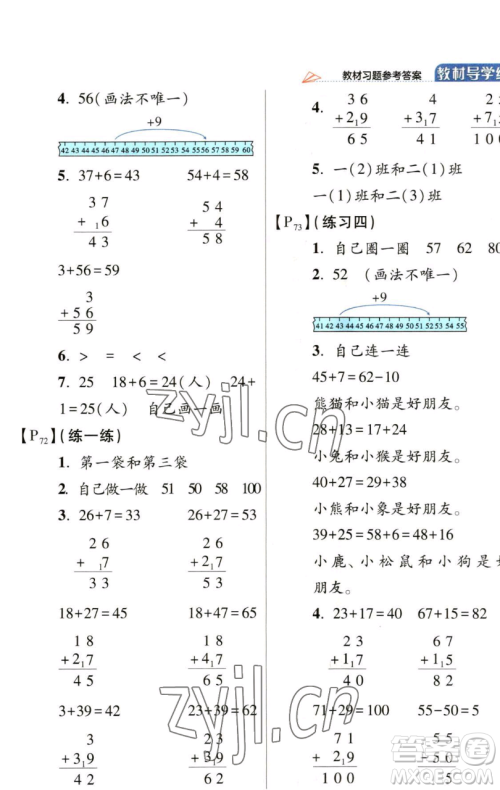 教材习题参考答案 教材导学
4. 56(画法不唯一)
+9
42 43 44 45 46 47 48 49 50 51 52 53 54 55 56 57 58 59 60
5. 37+6=43 54+4=58
3 7
+ ₁6
4 3
5 4
+ 4
5 8
3+56=59
3
+ 5 6
5 9
6. > = < <
7. 25 18+6=24(人) 24+
1=25(人) 自己画一画
【P72】(练一练)
1. 第一袋和第三袋
2. 自己做一做 51 50 58 100
3. 26+7=33 26+27=53
2 6
+ ₁7
3 3
2 6
+2₁7
5 3
18+27=45 18+47=65
1 8
+2₁7
4 5
1 8
+4₁7
6 5
3+39=42 23+39=62
3
+3₁9
4 2
2 3
+3₁9
6 2
4.
3 6
+2₁9
6 5
4
+3₁7
4 1
+7
1 0 0
5. 一(2)班和二(1)班
一(1)班和二(3)班
【P73】(练习四)
1. 自己圈一圈 57 62 80
2. 52 (画法不唯一)
+9
41 42 43 44 45 46 47 48 49 50 51 52 53 54 55
3. 自己连一连
45+7=62-10
熊猫和小猫是好朋友。
28+13=17+24
小兔和小猴是好朋友。
40+27=29+38
小熊和小象是好朋友。
39+25=48+16
小鹿、小松鼠和小狗是好
朋友。
4. 23+17=40 67+15=82
2 3
+1₁7
4 0
6 7
+1₁5
8 2
71+29=100 55-50=5
7 1
+ 2₁9
1 0 0
5 5
- 5 0
5
zyjl.cn
zyjl.cn